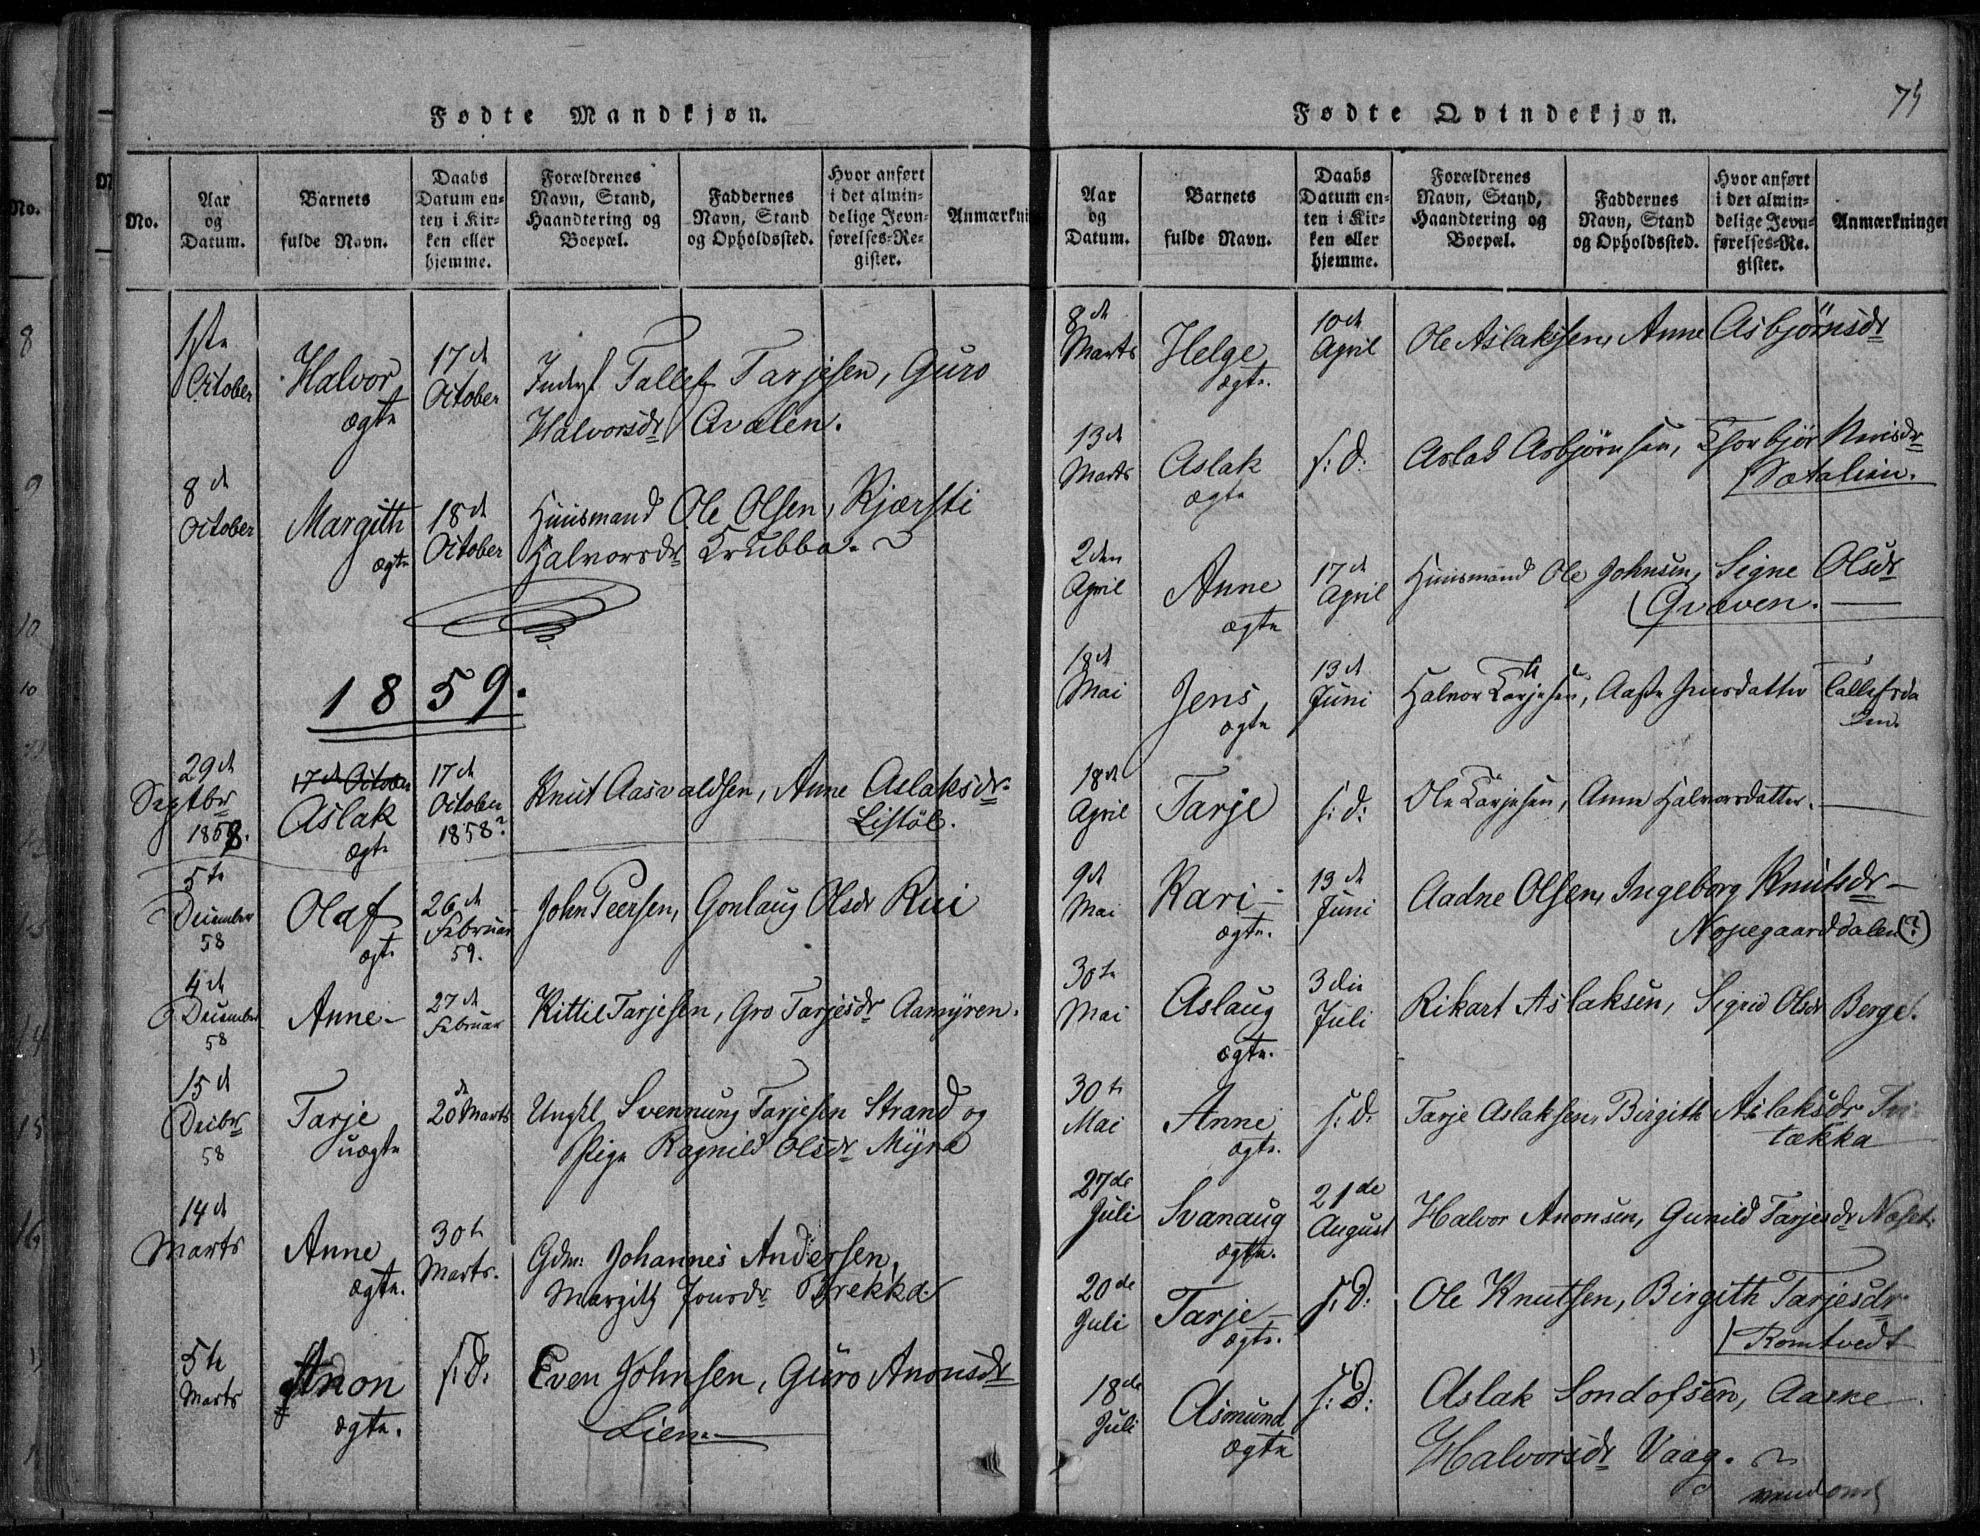 Fødte Mandkjøn.
No.
Aar og Datum.
Barnets fulde Navn.
Daabs Datum enten i Kirken eller hjemme.
Forældrenes Navn, Stand, Haandtering og Boepæl.
Faddernes Navn, Stand og Opholdssted.
Hvor anført i det almindelige Jevnførelses-Register.
Anmærkni
1ste October
Halvor ægte
17de October
Tallef Tarjesen, Guro
Halvorsdr Avalen.
8de October
Margith ægte
18de October
Huusmand Ole Olsen, Kjærsti
Halvorsdr Krubba.
1859.
29de Septbr 1858.
17de October
Aslak ægte
17de October 1858?
Knut Aasvaldsen, Anne Aslaksdr
Listøl.
5te December 58
Olaf ægte
26de Februar 59.
John Peersen, Gonlaug Olsdr Rui
4de December 58
Anne
27de Februar
Kittil Tarjesen, Gro Tarjesdr Aamyren.
15de Decbr 58
Tarje uægte
20de Marts
Ungkl Svennung Tarjesen Strand og
Pige Ragnild Olsdr Myra
14de Marts
Anne ægte.
30te Marts.
Gdm: Johannes Andersen,
Margith Jonsdr Brekka
5te Marts
Anon ægte.
s.D.
Even Johnsen, Guro Anonsdr
Lien
Fødte Qvindekjøn.
75
Aar og Datum.
Barnets fulde Navn.
Daabs Datum enten i Kirken eller hjemme.
Forældrenes Navn, Stand, Haandtering og Boepæl.
Faddernes Navn, Stand og Opholdssted.
Hvor anført i det almindelige Jevnførelses-Re.gister.
Anmærkninger
8de Marts
Helge ægte.
10de April
Ole Aslaksen, Anne Asbjørnsdr
13de Marts
Aslak ægte
s: D:
Aslak Asbjørnsen, Thorbjør
Sætalien.
2den April
Anne ægte
17de April
Huusmand Ole Johnsen, Signe Olsdr
Græven.
18de Mai
Jens ægte
13de Juni
Halvor Tarjesen, Aaste Jensdatter Tallefsdalen.
18de April
Tarje
s: D:
Ole Tarjesen, Anne Halvorsdatter.
9de Mai
Kari ægte.
13de Juni
Aadne Olsen, Ingeborg Knutsdr
Nopegaarddalen (?)
30te Mai
Aslaug ægte.
3die Juli
Rikart Aslaksen, Sigrid Olsdr Berge.
30te Mai
Anne ægte.
s: D.
Tarje Aslaksen, Birgith Aslaksdr
tækka
27de Juli
Svanaug ægte.
21de August
Halvor Anonsen, Gunild Tarjesdr Næset.
20de Juli
Tarje ægte.
s. D:
Ole Knutsen, Birgith Tarjesdr
Romtvedt
18de Juli
Asmund ægte
s: D:
Aslak Sondofsen, Aasne
Halvorsdr Vaag.
vend om